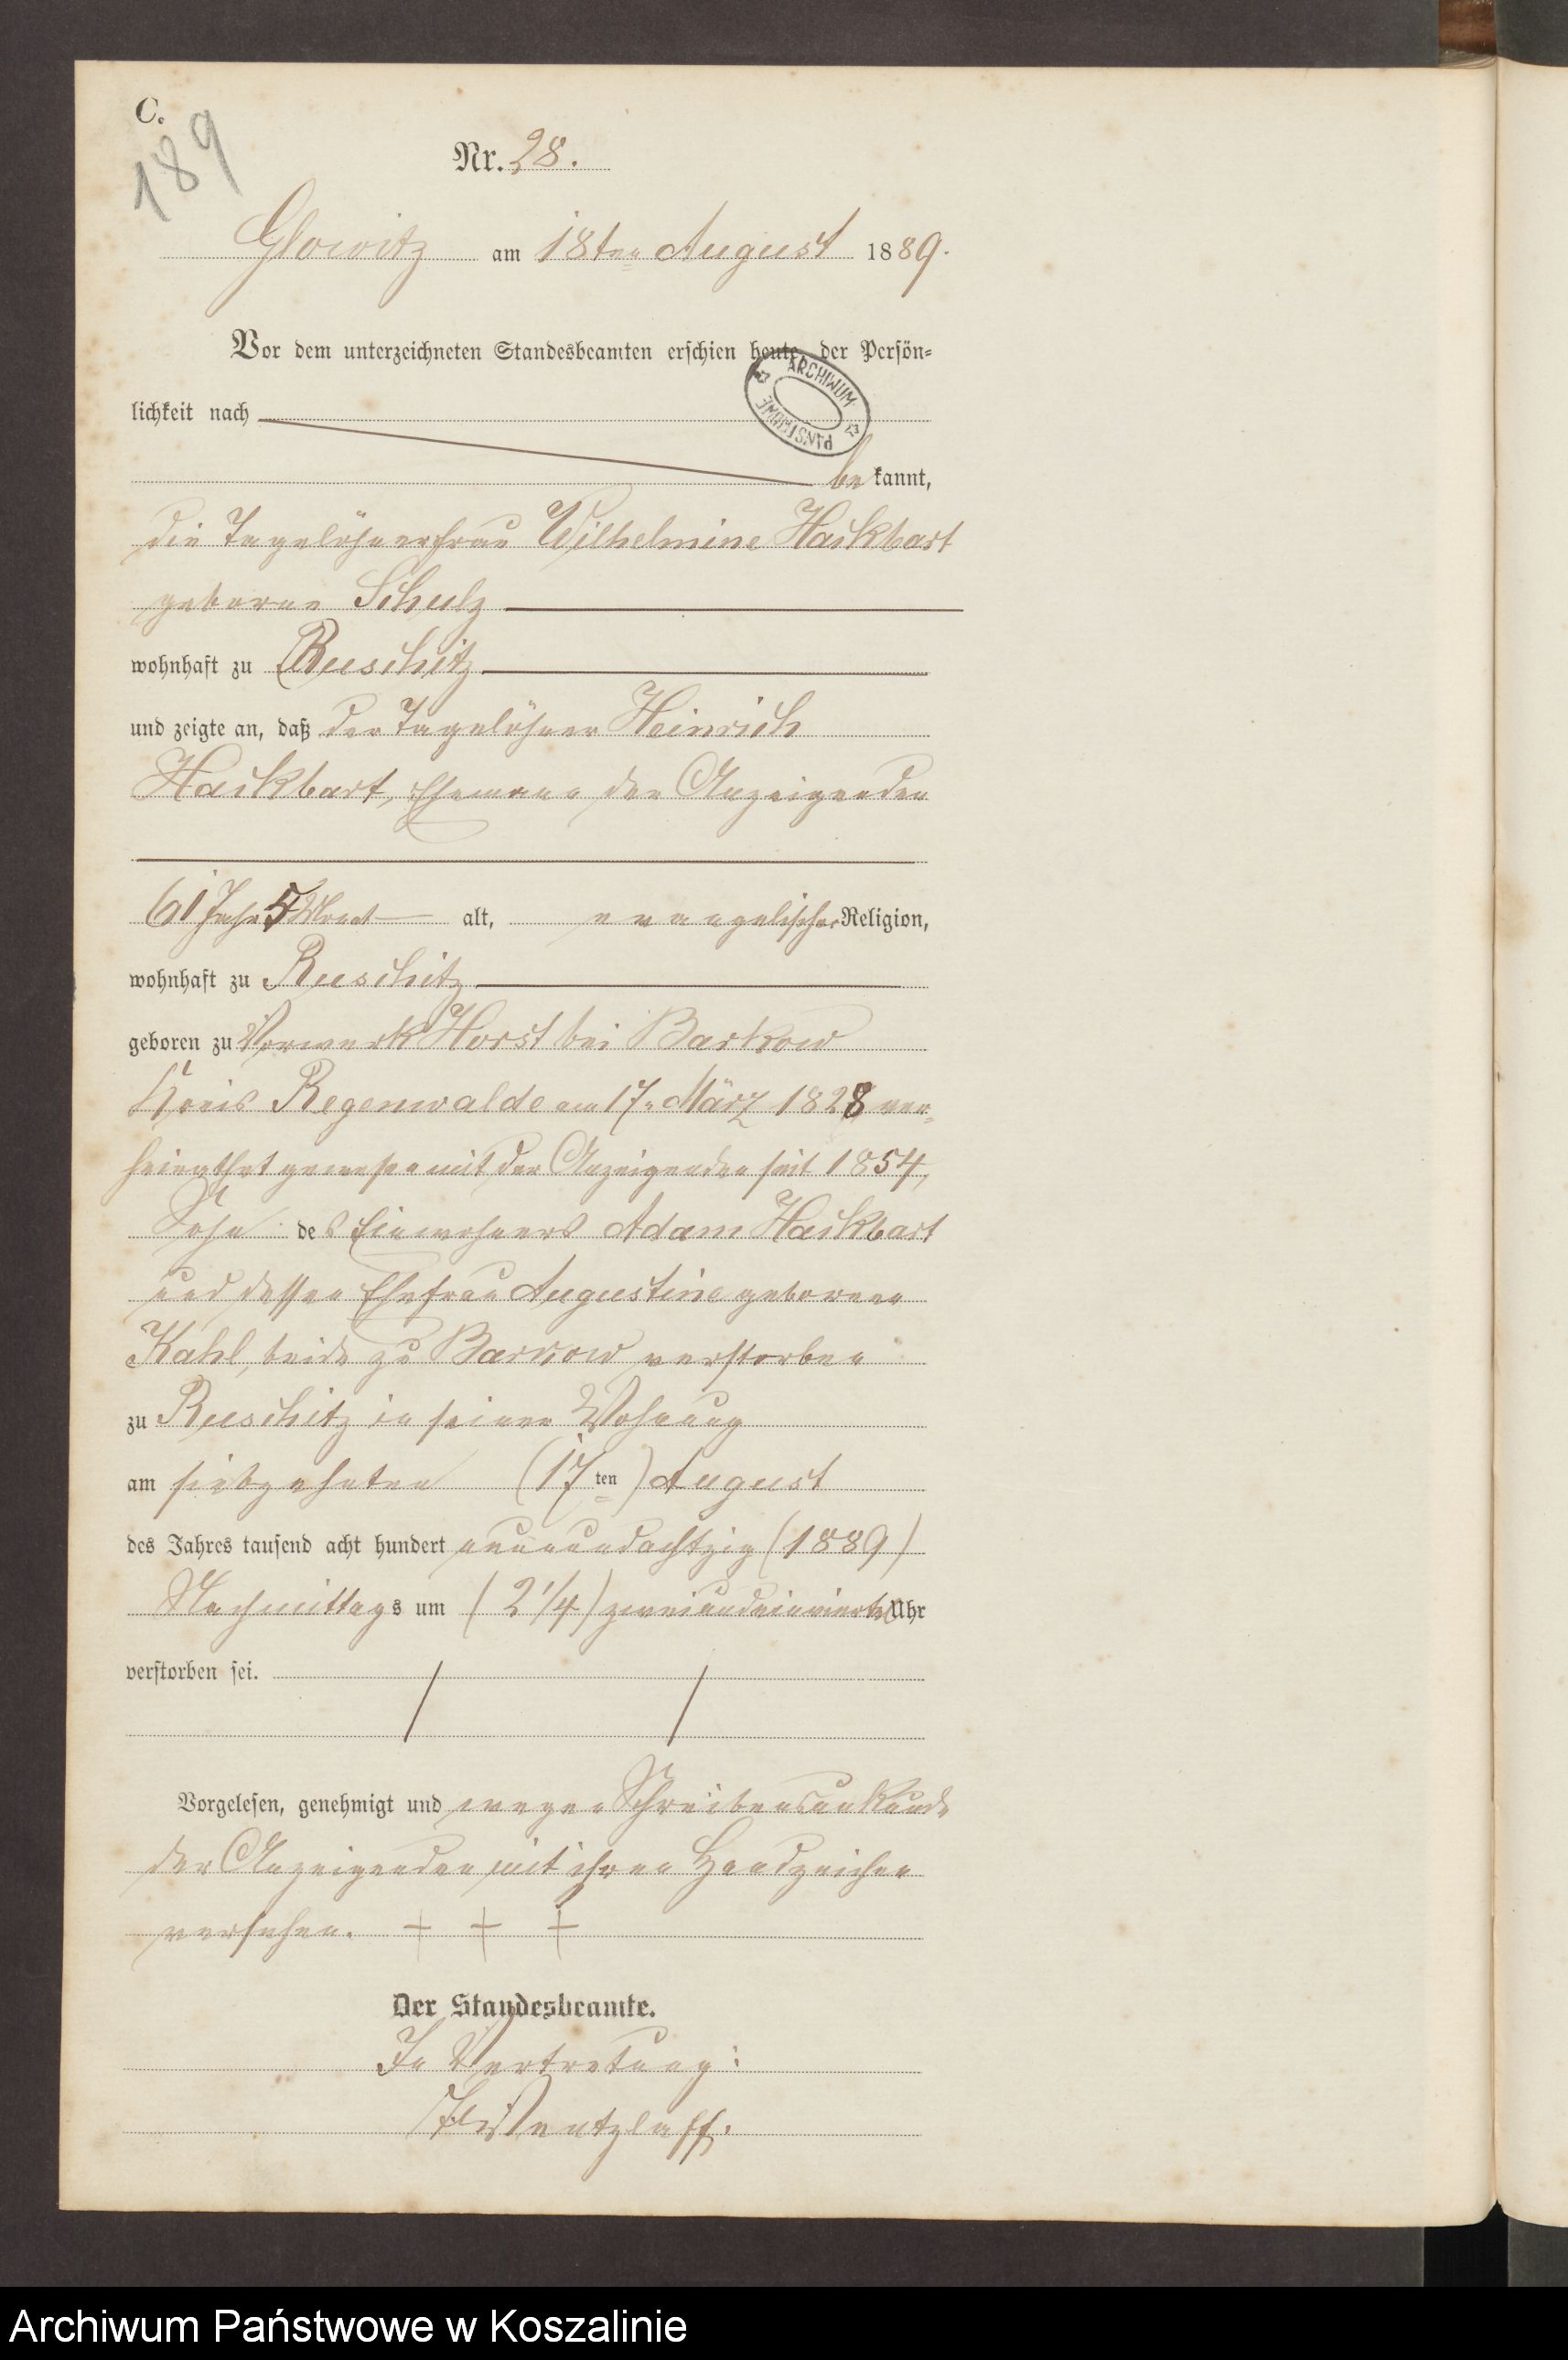 C.
189
Nr. 28.
Glowitz am 18ten August 1889.
Vor dem unterzeichneten Standesbeamten erschien heute, der Persön=
lichkeit nach
ARCHIWUM PAŃSTWOWE
bekannt,
die Tagelöhnerfrau Wilhelmine Hackbart
geborne Schulz
wohnhaft zu Ruschitz
und zeigte an, daß der Tagelöhner Heinrich
Hackbart, Ehemann der Anzeigenden
61 Jahr 5 Monat alt, evangelischer Religion,
wohnhaft zu Ruschitz
geboren zu Vorwerk Horst bei Barkow
Kreis Regenwalde am 17n März 1828 ver=
heirathet gewesen mit der Anzeigenden seit 1854,
Sohn des Einwohners Adam Hackbart
und dessen Ehefrau Augustine geborene
Kahl, beide zu Barkow verstorben
zu Ruschitz in seiner Wohnung
am siebzehnten (17ten) August
des Jahres tausend acht hundert neunundachtzig (1889)
Nachmittags um (2 1/4) zweiundeinviertel Uhr
verstorben sei.
Vorgelesen, genehmigt und wegen Schreibensunkunde
der Anzeigenden mit ihren Handzeichen
versehen. + + +
Der Standesbeamte.
In Vertretung:
Wentzlaff.
Archiwum Państwowe w Koszalinie